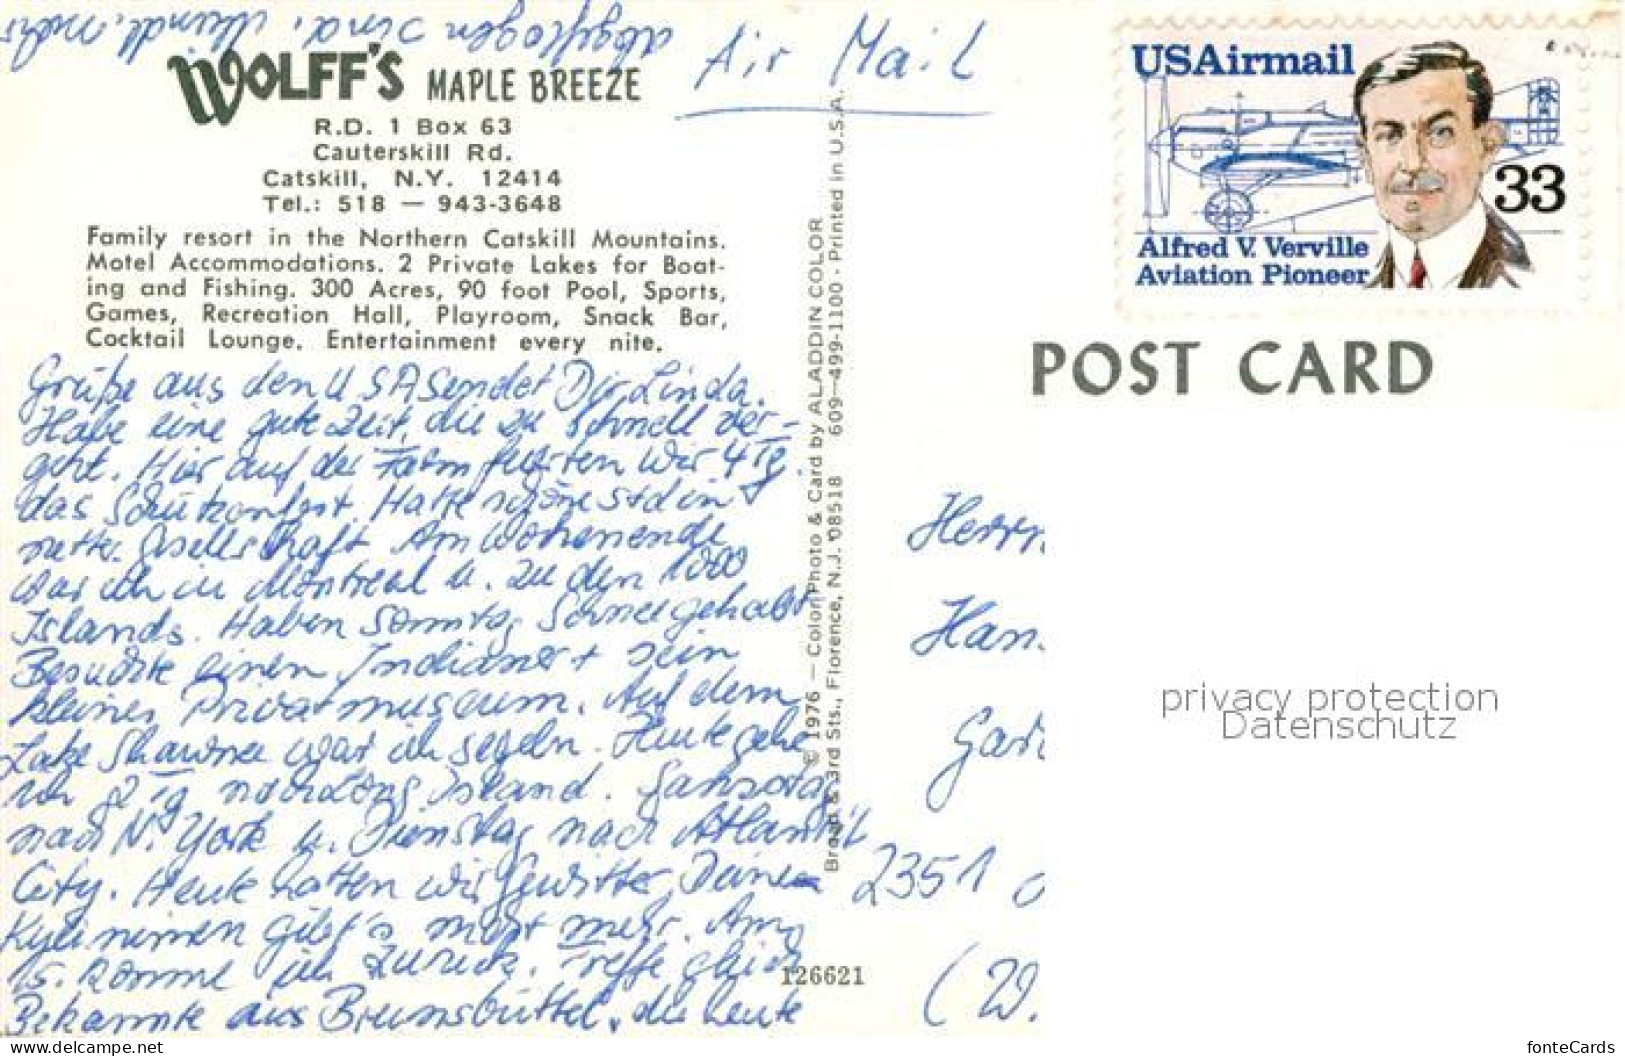 abgeflogen sind. Mündl. mehr
Air Mail
WOLFF'S MAPLE BREEZE
R.D. 1 Box 63
Cauterskill Rd.
Catskill, N.Y. 12414
Tel.: 518 — 943-3648
Family resort in the Northern Catskill Mountains.
Motel Accommodations. 2 Private Lakes for Boat-
ing and Fishing. 300 Acres, 90 foot Pool, Sports,
Games, Recreation Hall, Playroom, Snack Bar,
Cocktail Lounge. Entertainment every nite.
Grüße aus den USA sendet Dir Linda.
Habe eine gute Zeit, die zu schnell ver-
geht. Hier auf der Farm feierten wir 4 Tg.
das Schützenfest. Hatte schöne Std in
netter Gesellschaft. Am Wochenende
war ich in Montreal u. zu den 1000
Islands. Haben Sonntag Schnee gehabt
Besuchte einen Indianer + sein
kleines Privatmuseum. Auf dem
Lake Shawnee war ich segeln. Heute gehe
ich 2 Tg nach Long Island. Samstag
nach N. York u. Dienstag nach Atlantik
City. Heute hatten wir Gewitter, Deine
gibt's nicht mehr. Am
15. komme ich zurück. Treffe gleich
Bekannte aus Brunsbüttel, die heute
© 1976 — Color Photo & Card by ALADDIN COLOR
Broad & 3rd Sts., Florence, N.J. 08518 609—499-1100 - Printed in U.S.A.
126621
USAirmail
33
Alfred V. Verville
Aviation Pioneer
POST CARD
Herrn
Han
Gar
2351
(W.
privacy protection
Datenschutz
www.delcampe.net/mwpostcards.com
fonteCards